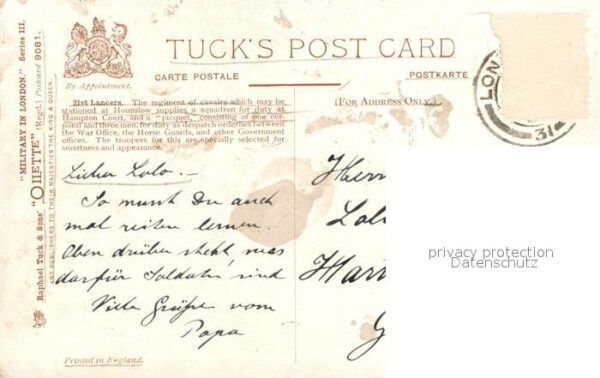 TUCK'S POST CARD
By Appointment.
CARTE POSTALE
POSTKARTE
(FOR ADDRESS ONLY.)
21st Lancers. The regiment of cavalry which may be
stationed at Hounslow supplies a squadron for duty at
Hampton Court, and a "picquet," consisting of one cor-
poral and three men, for duty as despatch orderlies between
the War Office, the Horse Guards, and other Government
offices. The troopers for this are specially selected for
smartness and appearance.
"MILITARY IN LONDON." Series III.
Raphael Tuck & Sons' "OILETTE" (Regd.) Postcard 9081.
ART PUBLISHERS TO THEIR MAJESTIES THE KING & QUEEN.
Lieber Lolo. –
So musst Du auch
mal reiten lernen.
Oben drüber steht, was
das für Soldaten sind
Viele Grüße vom
Papa
Herr
Lol
Har
G
LON
31
privacy protection
Datenschutz
Printed in England.